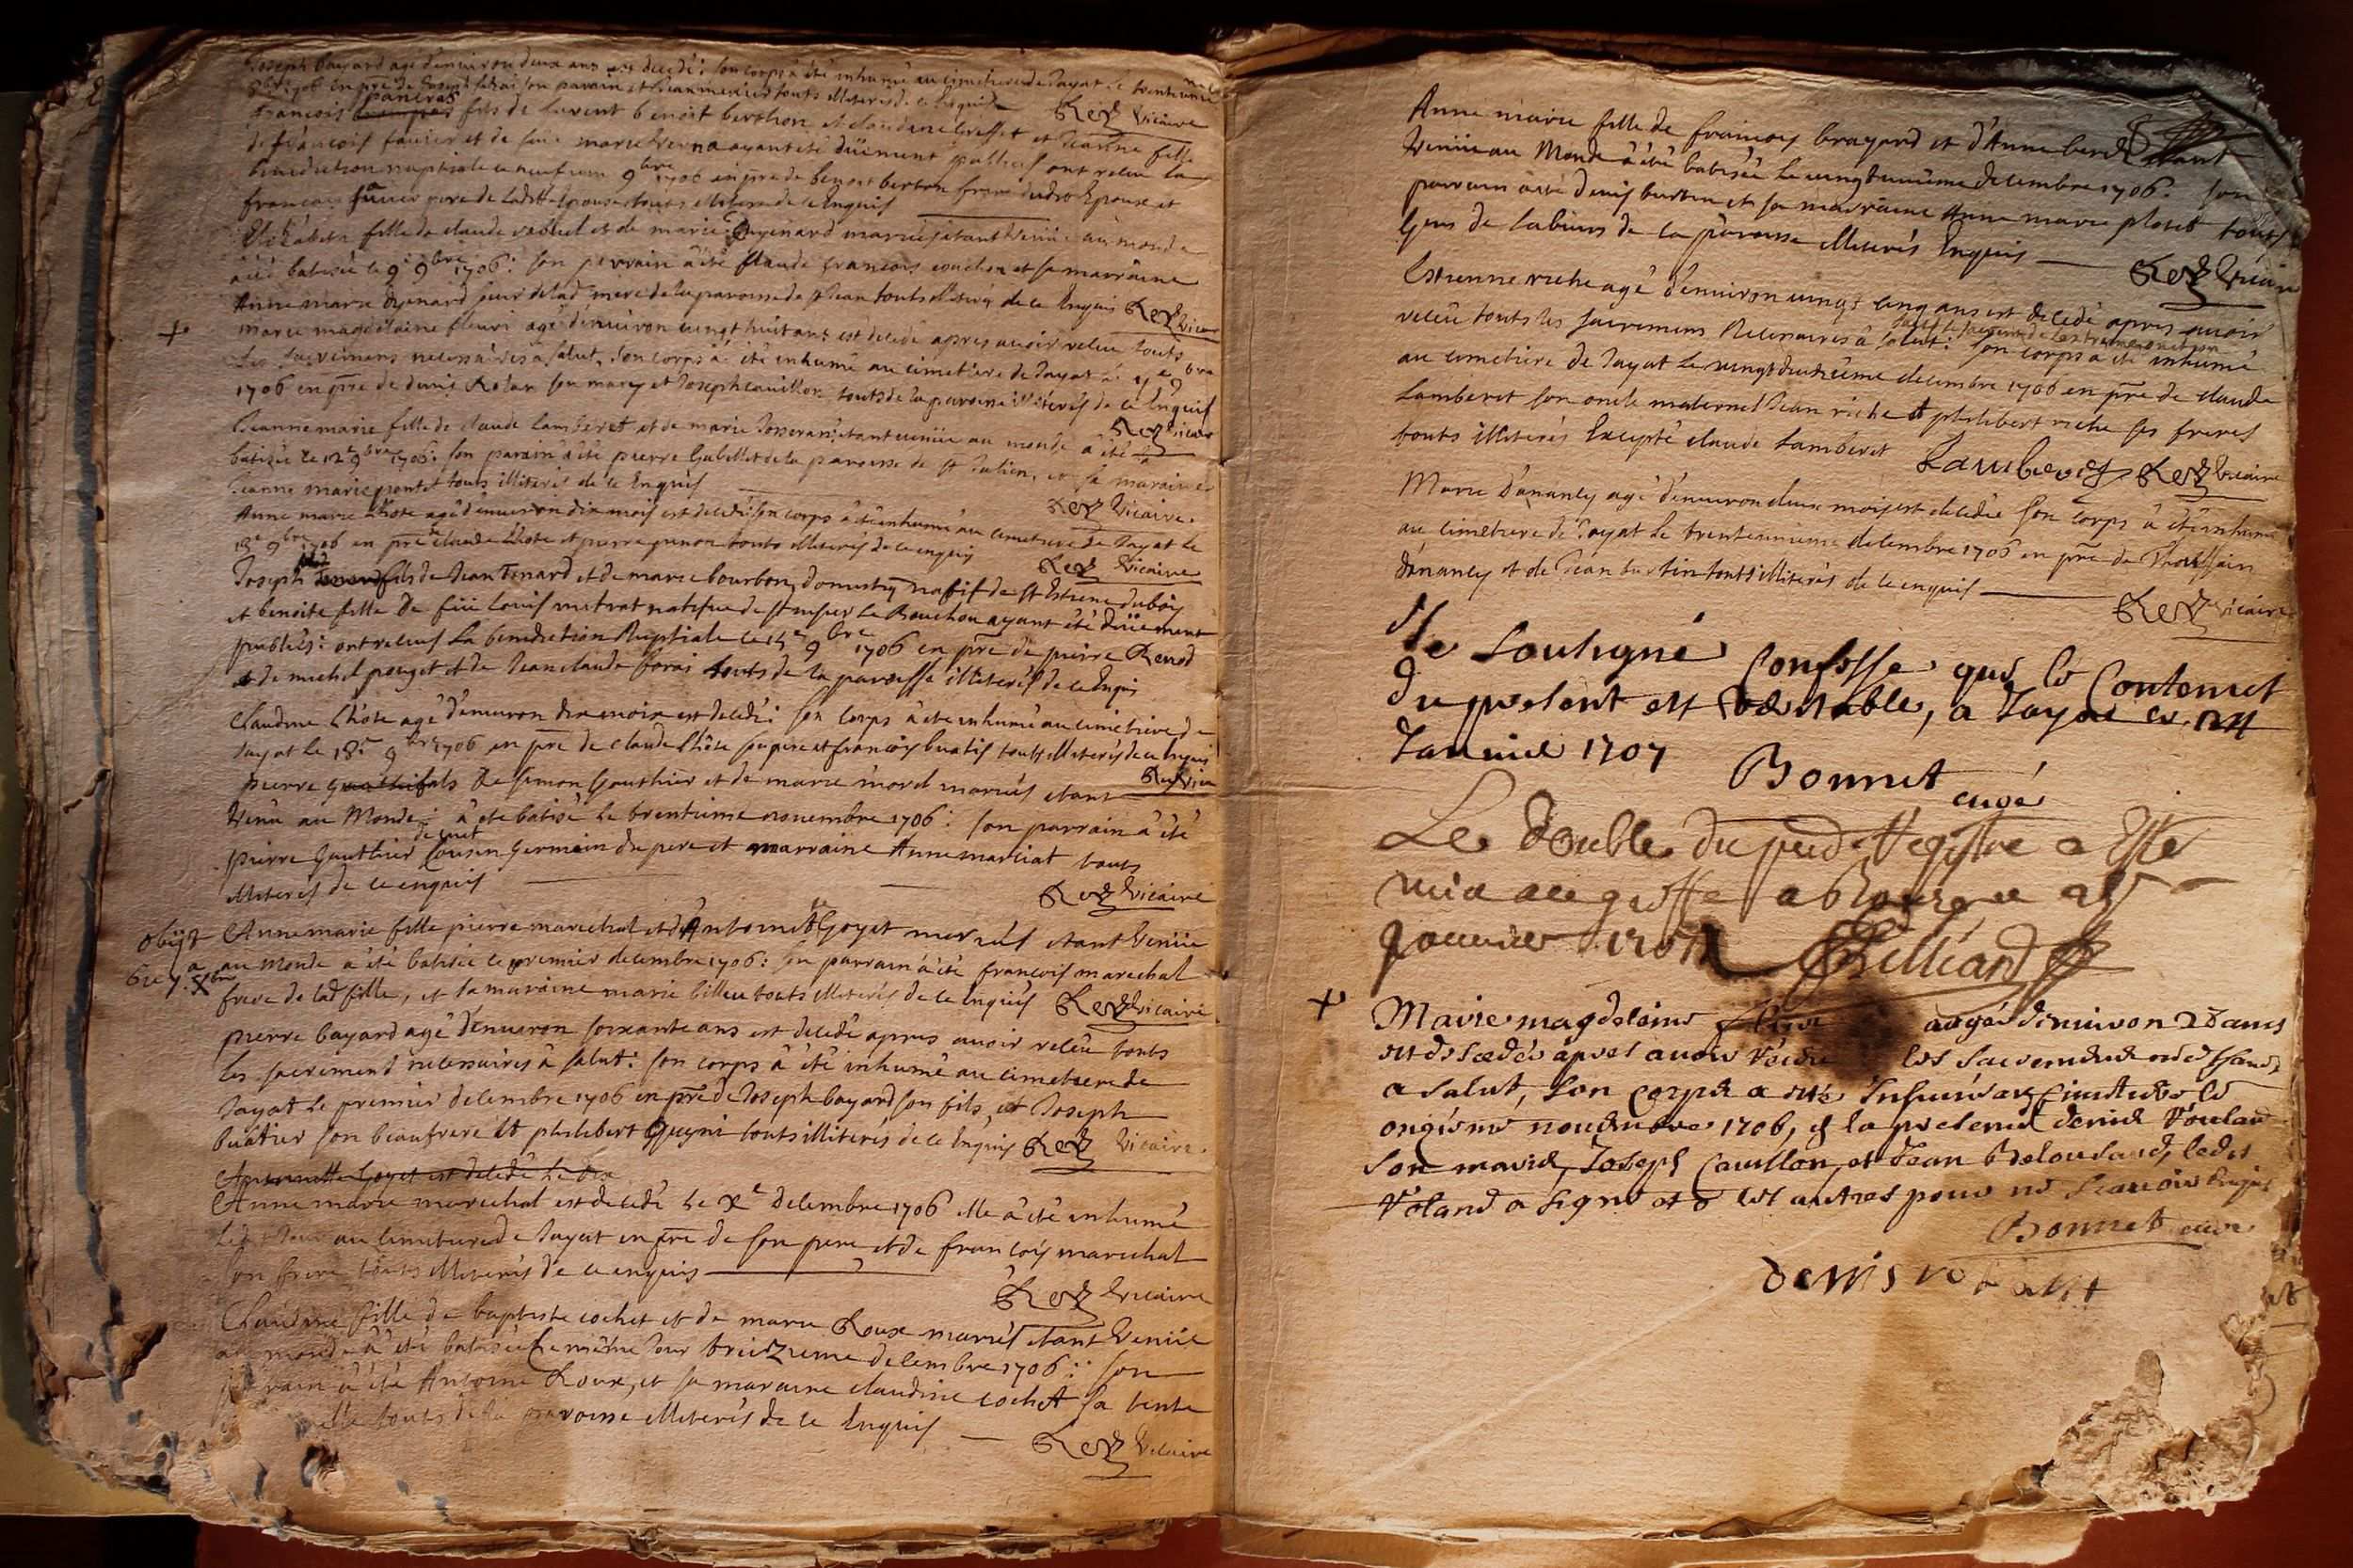 Joseph bayard agé d'environ deux ans est decedé: son corps à été inhumé au cimetiere de Jayat le trentunie
8bre 1706 en pre de Joseph son parain et touts illiterés de ce Enquis
Rey Vicaire
pancras
francois fils de laurent benoit berthon et claudine et Jeanne fille
de francois favier et de feue marie verna ayant été düement publiés ont receu la
benediction nuptiale ce neufvieme 9bre 1706 en pre de benoit berton frere dudt Epoux et
francois favier pere de ladtte Epouse touts illiteres de ce Enquis
Elizabeth fille de claude et de marie Dyenard mariés etant veniie au monde
à été batisée le 9e 9bre 1706: son parrain à été claude francois cochon et sa marraine
Anne marie dyenard seur de lad mere de la paroisse de st Jean touts illiterés de ce Enquis Rey Vicaire
+ marie magdelaine fleuri agé d'environ vingt huit ans est decedé apres avoir receu touts
les sacremens necessaires à salut, son corps à été inhumé au cimetiere de Jayat le 11e 9bre
1706 en pre de denis Rolan son mary et Joseph cauillon touts de la paroisse illiterés de ce Enquis
Rey Vicaire
Jeanne marie fille de claude lamberet et de marie Josserand etant veniie au monde à été
batisée le 12e 9bre 1706: son parain à été pierre Gabillet de la paroisse de st Julien, et sa maraine
Jeanne marie pontet touts illiterés de ce Enquis
Rey Vicaire.
Anne marie Lhote agé d'environ dix mois est decedé: son corps à été inhumé au cimetiere de Jayat le
18e 9bre 1706 en pre de claude Lhote et pierre touts illiterés de ce enquis
Rey Vicaire
Joseph fils de Jean Tenard et de marie bourbon, domestiq natif de st Estiene dubois
et benoite fille de feü Louis mitrat natifve de st sulpis le Bouchou ayant été düement
publiés: ont receus la benediction Nuptiale le 15e 9bre 1706 en pre de pierre Renod
et de michel pouget et de Jean claude borai touts de la paroisse illiterés de ce Enquis
Claudine Lhôte agé d'environ dix mois est decedé: son corps à été inhumé au cimetiere de
Jayat le 18e 9bre 1706 en pre de claude Lhôte son pere et francois buatis touts illiterés de ce Enquis
Rey Vicaire
pierre fils de simon Gauthier et de marie morel mariés etant
Venü au Monde: à été batisé le trentieme novembre 1706: son parrain à été
pierre Gauthier Cousin Germain du pere et marraine Anne marciat touts
illiterés de ce enquis
Rey Vicaire
obijt
6 ie 7. Xbre
Anne marie fille pierre marechal et d'Antoinette Goyet mariés etant Veniie
au Monde à été batisée le premier decembre 1706: son parrain à été francois marechal
frere de lad fille, et sa maraine marie billeu touts illiterés de ce Enquis Rey Vicaire
pierre bayard agé d'environ soixante ans est decedé apres avoir receu touts
les sacremens necessaires à salut: son corps à été inhumé au cimetiere de
Jayat le premier decembre 1706 en pre de Joseph bayard son fils, et Joseph
buatier son beaufrere et philibert Guyni touts illiterés de ce Enquis Rey Vicaire.
Antoinette Goyet est decedé le dix
Anne marie marechal est decedé le Xe decembre 1706 elle à été inhumé
led Jour au cimetiere de Jayat en pre de son pere et de francois marechal
son frere touts illiterés de ce enquis
Rey Vicaire
Claudine fille de baptiste cochet et de marie Roux mariés etant Veniie
au monde à été batisée le même Jour treizieme decembre 1706: son
parrain à été Antoine Roux, et sa maraine claudine cochet sa tente
touts de la paroisse illiterés de ce Enquis
Rey Vicaire
Anne marie fille de francois brayard et d'Anne etant
Veniie au Monde à été batisée le vingtunième decembre 1706: son
parrain à été denis burtin et sa marraine Anne marie plotet touts
Gens de labeurs de la paroisse illiterés Enquis
Rey Vicaire
Estienne riche agé d'environ vingt cinq ans est decedé apres avoir
receu touts les sacremens Necessaires à salut: son corps à été inhumé
au cimetiere de Jayat le vingtdeuxième decembre 1706 en pre de claude
Lamberet son oncle maternel Jean riche et philibert riche ses freres
touts illiterés Excepté claude Lamberet
Lamberet Rey Vicaire
Marie d'ananly agé d'environ deux mois est decedée son corps à été inhumé
au cimetiere de Jayat le trenteunieme decembre 1706 en pre de
d'ananly et de Jean burtin touts illiterés de ce enquis
Rey Vicaire
Je Soubsigné Confesse que le Contenut
du present est Veritable, a Jayat ce
Januier 1707
Bonnet curé
Le double du pnt Registre a Esté
mis au greffe a Bourg ce
Januier
+ Marie magdeleine aagée d'environ 28 ans
est decedée apres auoir les sacremens
a salut, son corps a esté Inhumé au Cimetiere le
onzieme nouembre 1706, En la presence denis Voland
son marid, Joseph Cauillon, et Jean Belousard, ledit
Voland a signé et les autres pour ne scauoir Enquis
Bonnet curé
denis volant